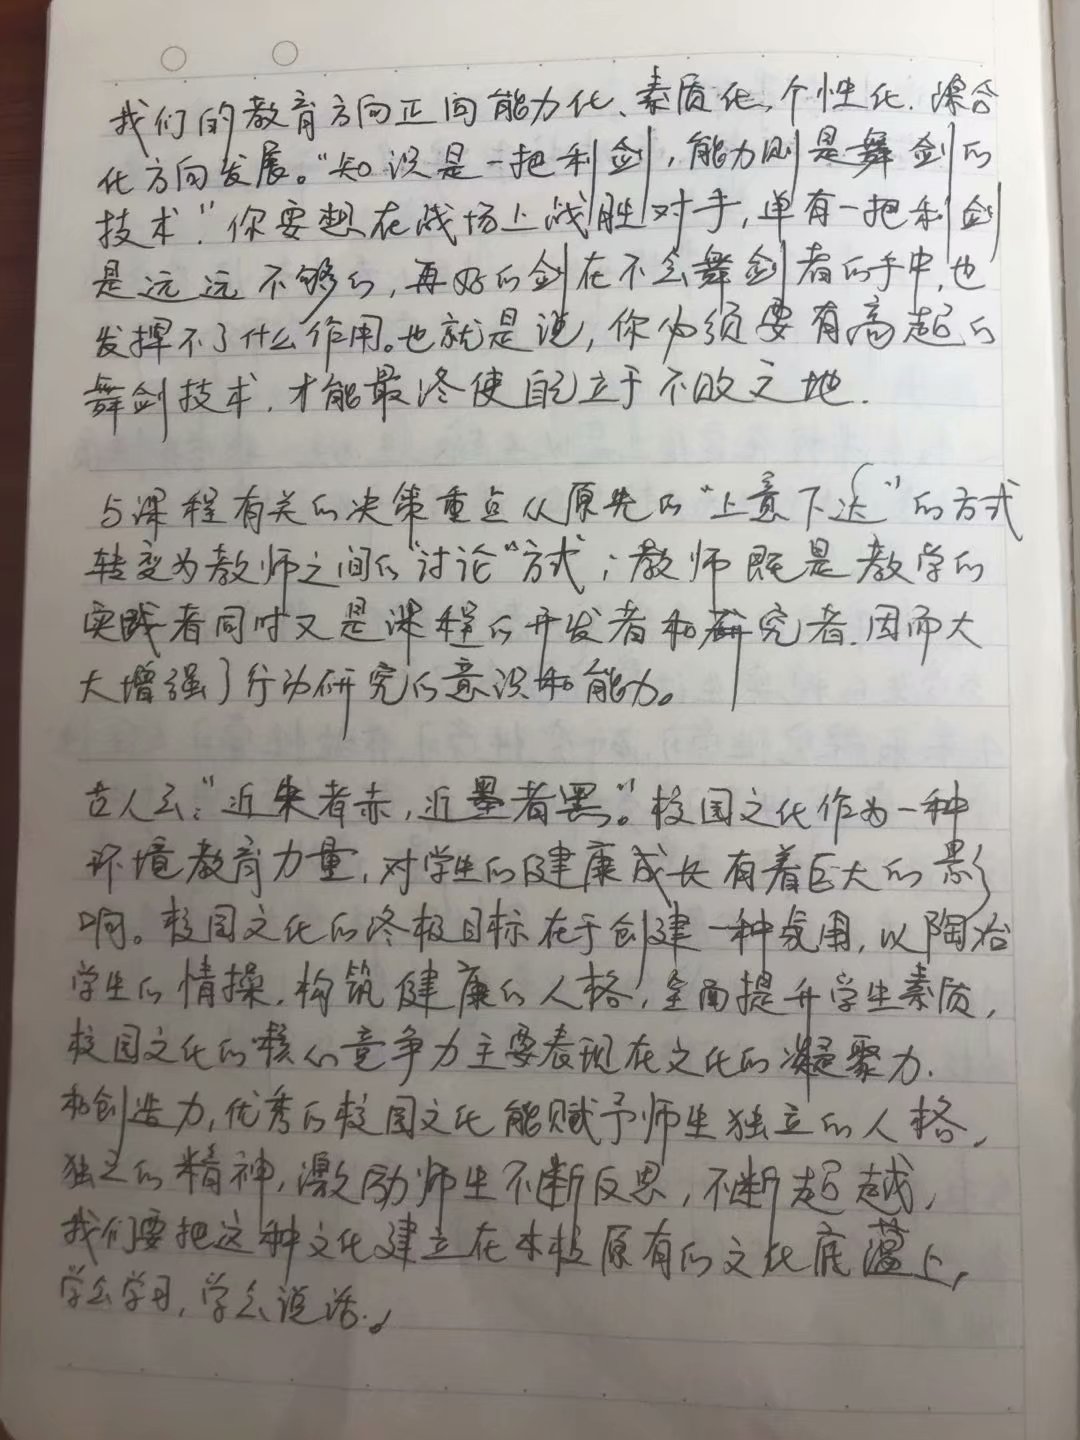 我们的教育方向正向能力化、素质化、个性化、综合
化方向发展。“知识是一把利剑,能力则是舞剑的
技术”.你要想在战场上战胜对手,单有一把利剑
是远远不够的,再好的剑在不会舞剑者的手中,也
发挥不了什么作用。也就是说,你必须要有高超的
舞剑技术,才能最终使自己立于不败之地.
与课程有关的决策重点从原先的“上意下达”的方式
转变为教师之间的“讨论”方式;教师既是教学的
实践者同时又是课程的开发者和研究者.因而大
大增强了行动研究的意识和能力。
古人云:“近朱者赤,近墨者黑”。校园文化作为一种
环境教育力量,对学生的健康成长有着巨大的影
响。校园文化的终极目标在于创建一种氛围,以陶冶
学生的情操,构筑健康的人格,全面提升学生素质,
校园文化的核心竞争力主要表现在文化的凝聚力.
和创造力,优秀的校园文化能赋予师生独立的人格,
独立的精神,激励师生不断反思,不断超越,
我们要把这种文化建立在本校原有的文化底蕴上,
学会学习,学会说话.。